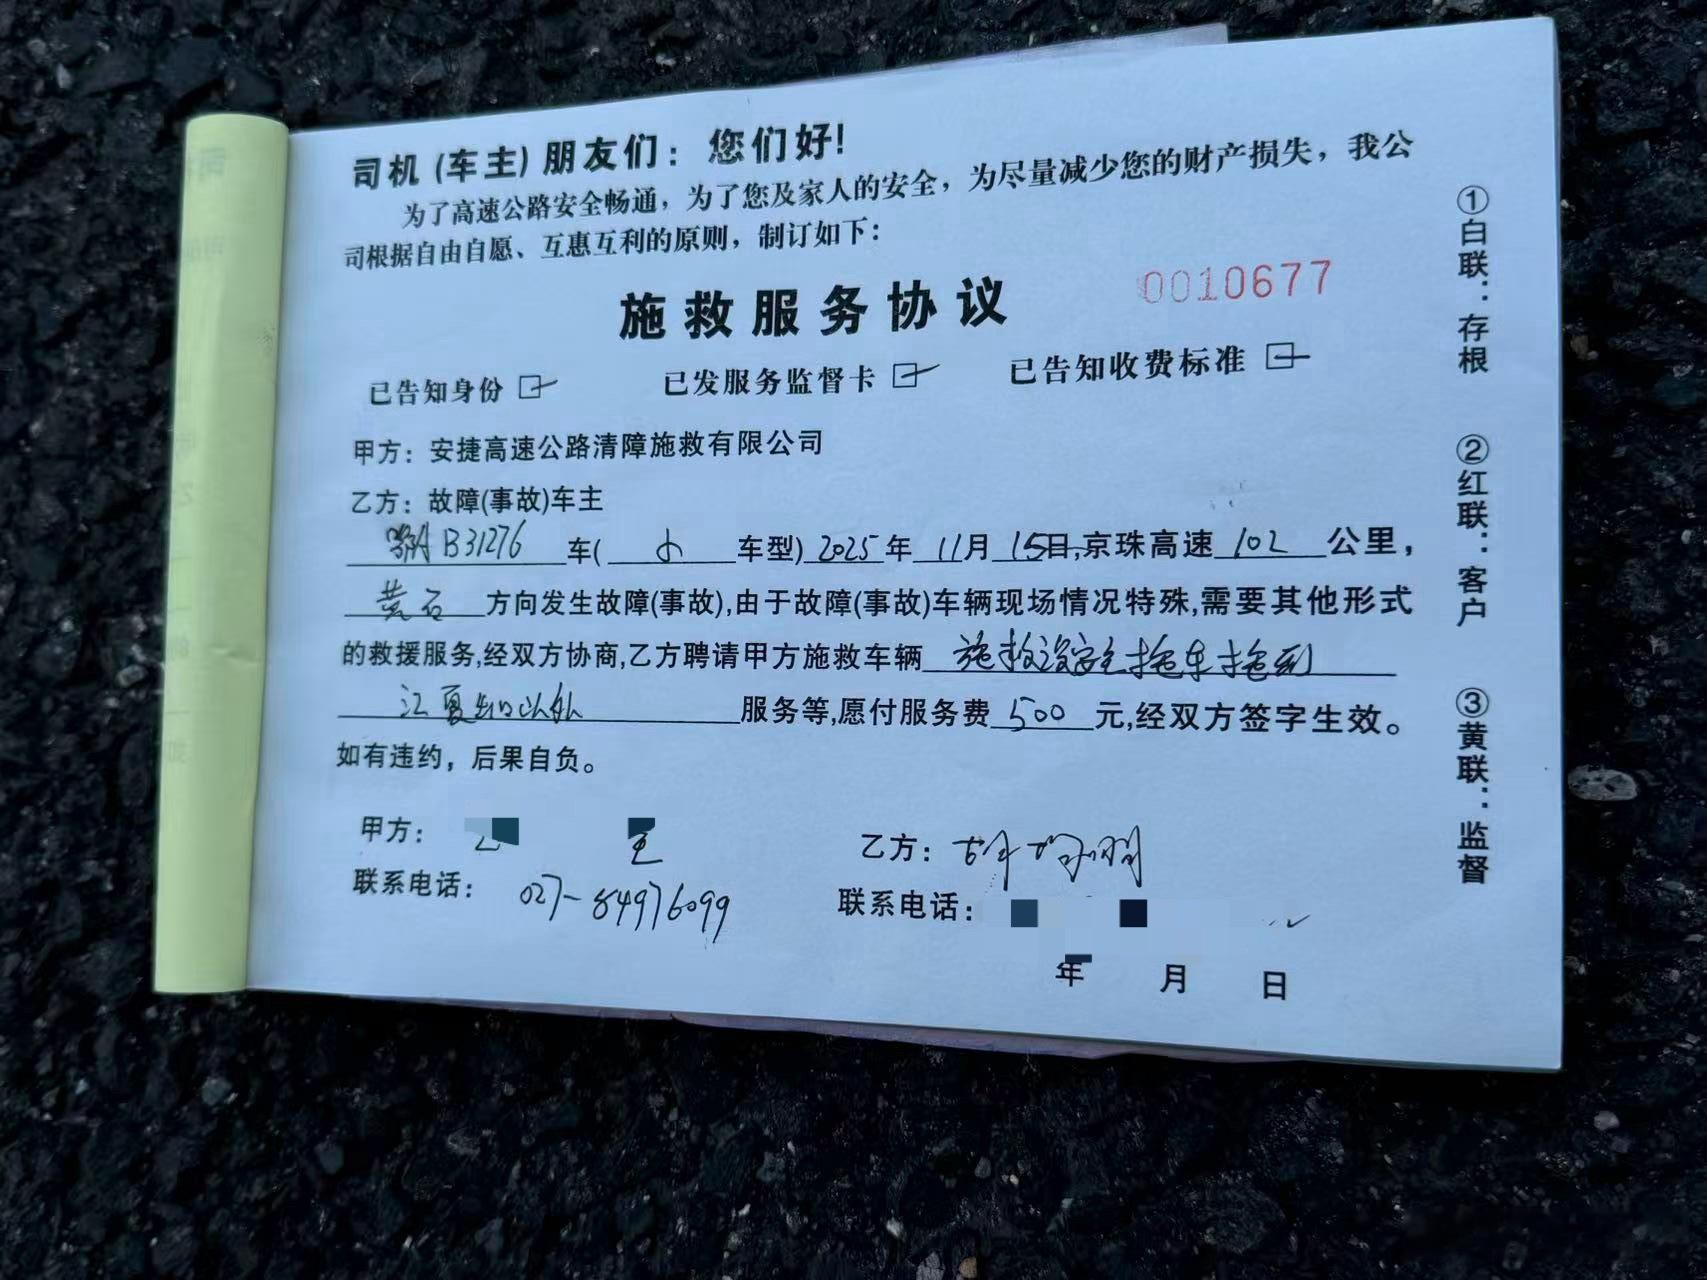 司机(车主)朋友们：您们好!
为了高速公路安全畅通，为了您及家人的安全，为尽量减少您的财产损失，我公
司根据自由自愿、互惠互利的原则，制订如下：
施救服务协议
0010677
已告知身份 已发服务监督卡 已告知收费标准
甲方：安捷高速公路清障施救有限公司
乙方：故障(事故)车主
B31276 车( 小 车型) 2025年 11月 15日,京珠高速 102 公里，
黄石 方向发生故障(事故),由于故障(事故)车辆现场情况特殊,需要其他形式
的救援服务,经双方协商,乙方聘请甲方施救车辆 施救 拖车拖到
江夏 以外 服务等,愿付服务费 500 元,经双方签字生效。
如有违约，后果自负。
甲方：
联系电话： 027-84976099
乙方：
联系电话：
年 月 日
①白联：存根
②红联：客户
③黄联：监督